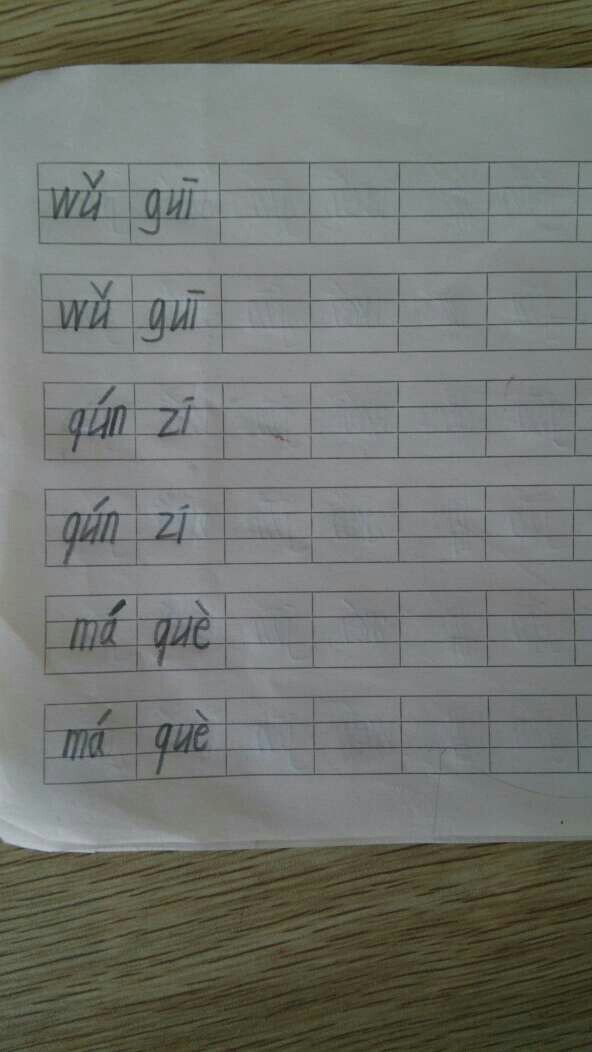 wǔ guī
wǔ guī
qún zī
qún zī
má què
má què